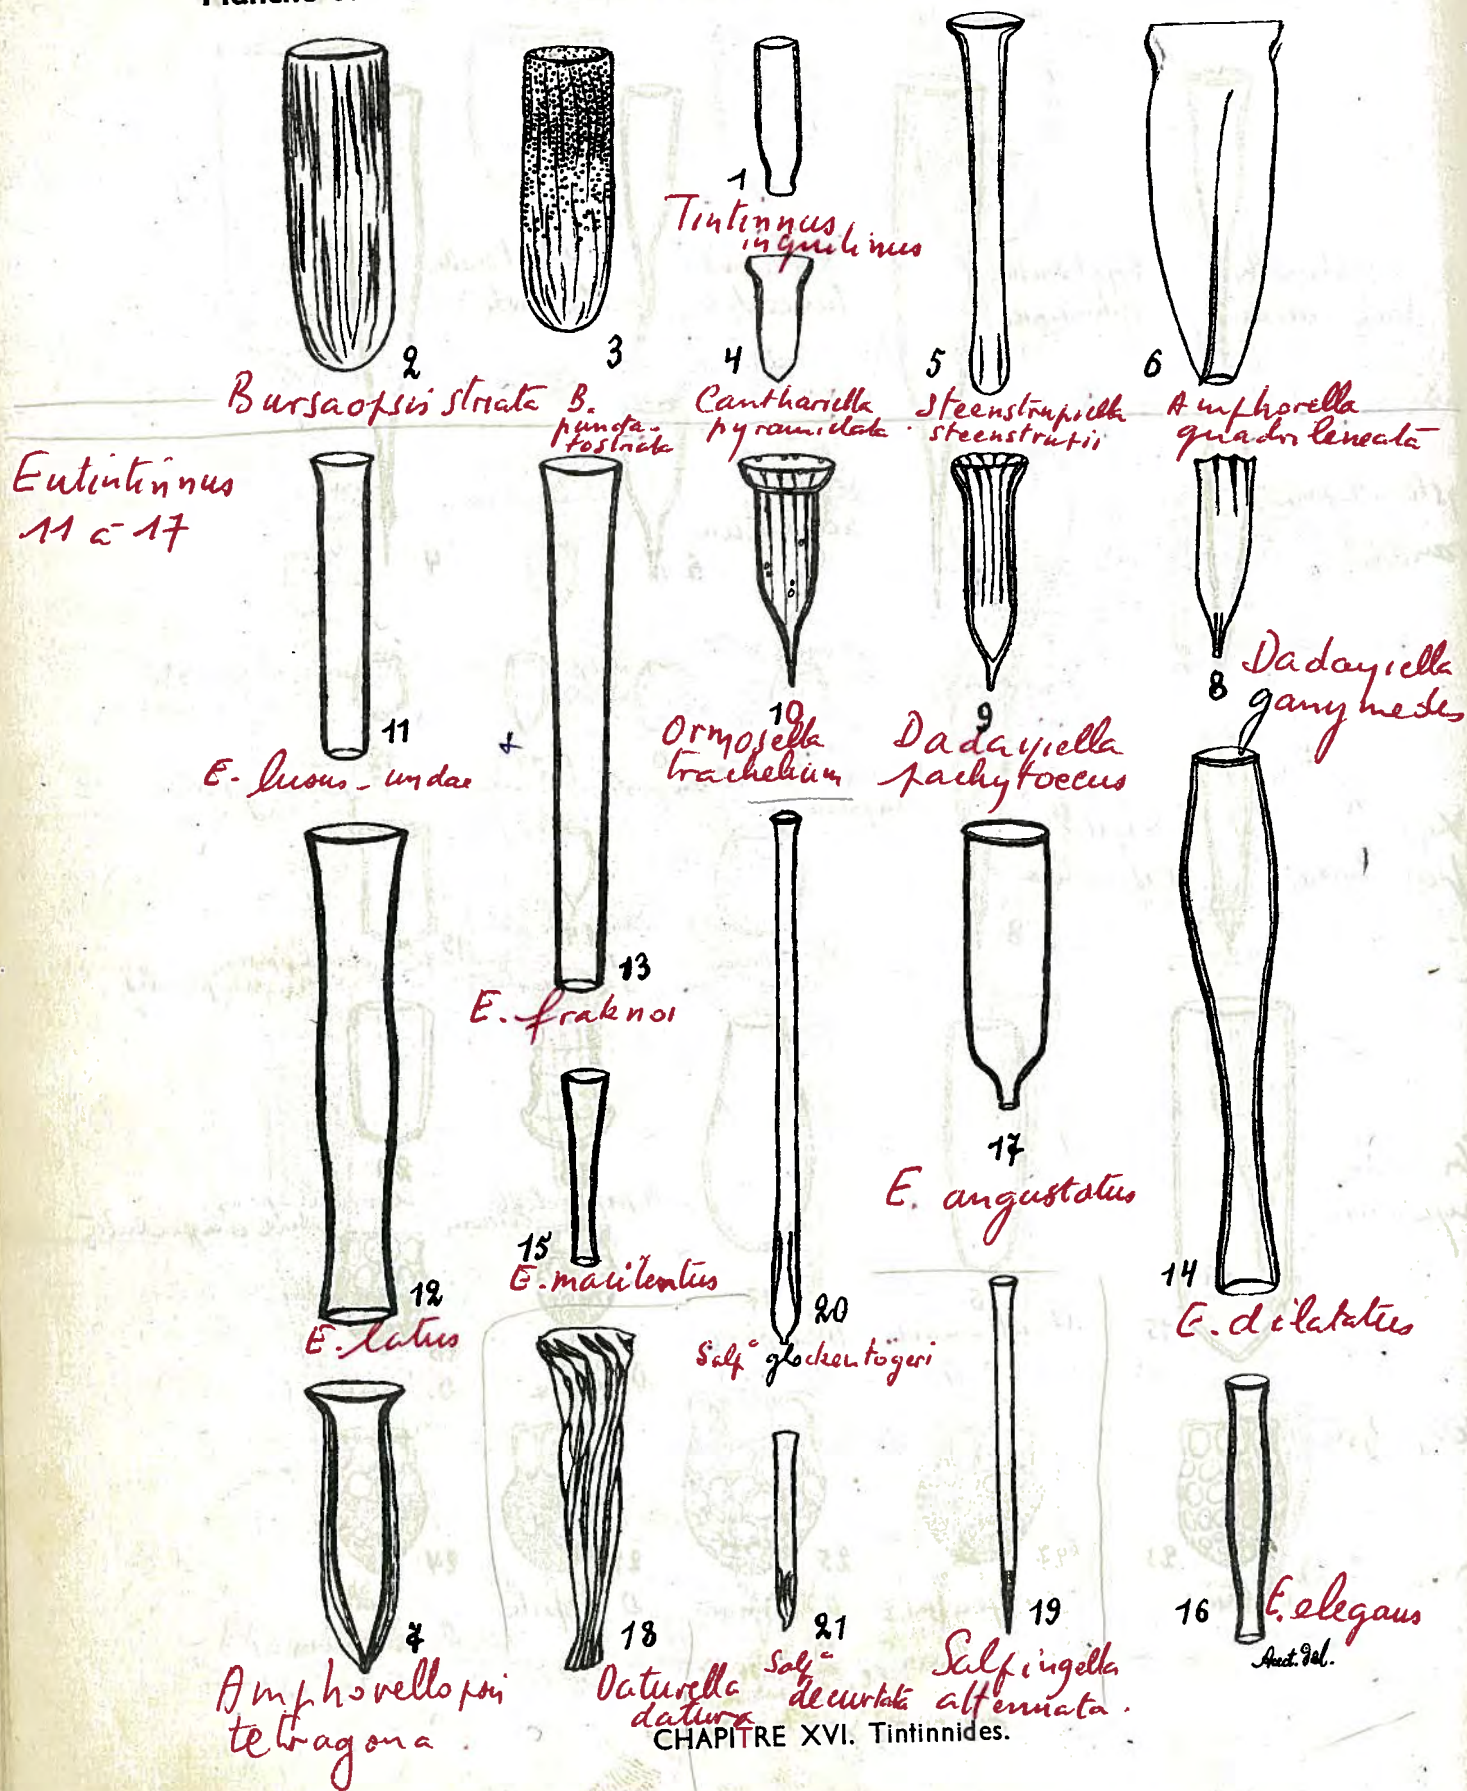 1
Tintinnus
inquilinus
2
Bursaopsis striata
3
B.
puncta-
tostriata
4
Canthariella
pyramidata
5
Steenstrupiella
steenstrupii
6
Amphorella
quadrilineata
Eutintinnus
11 à 17
11
E. lusus-undae
13
E. fraknoi
10
Ormosella
trachelium
9
Dadayiella
pachytoecus
8
Dadayiella
ganymedes
12
E. latus
15
E. macilentus
20
Salpª glockentögeri
17
E. angustatus
14
E. dilatatus
7
Amphorellopsis
tetragona.
18
Daturella
datura
21
Salpª
decurtata
19
Salpingella
attenuata.
16
E. elegans
Auct. del.
CHAPITRE XVI. Tintinnides.